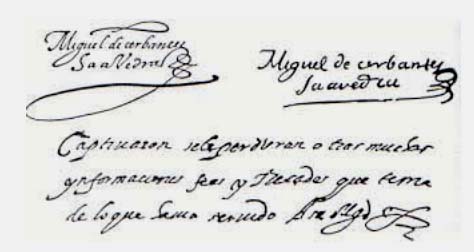 Miguel de cerbantes
SaaVedra
Miguel de cerbantes
saavedra
Captiuaron se le perdieron otras muchas
ynformaciones fees y Recados que tenia
de lo que hauia seruido a